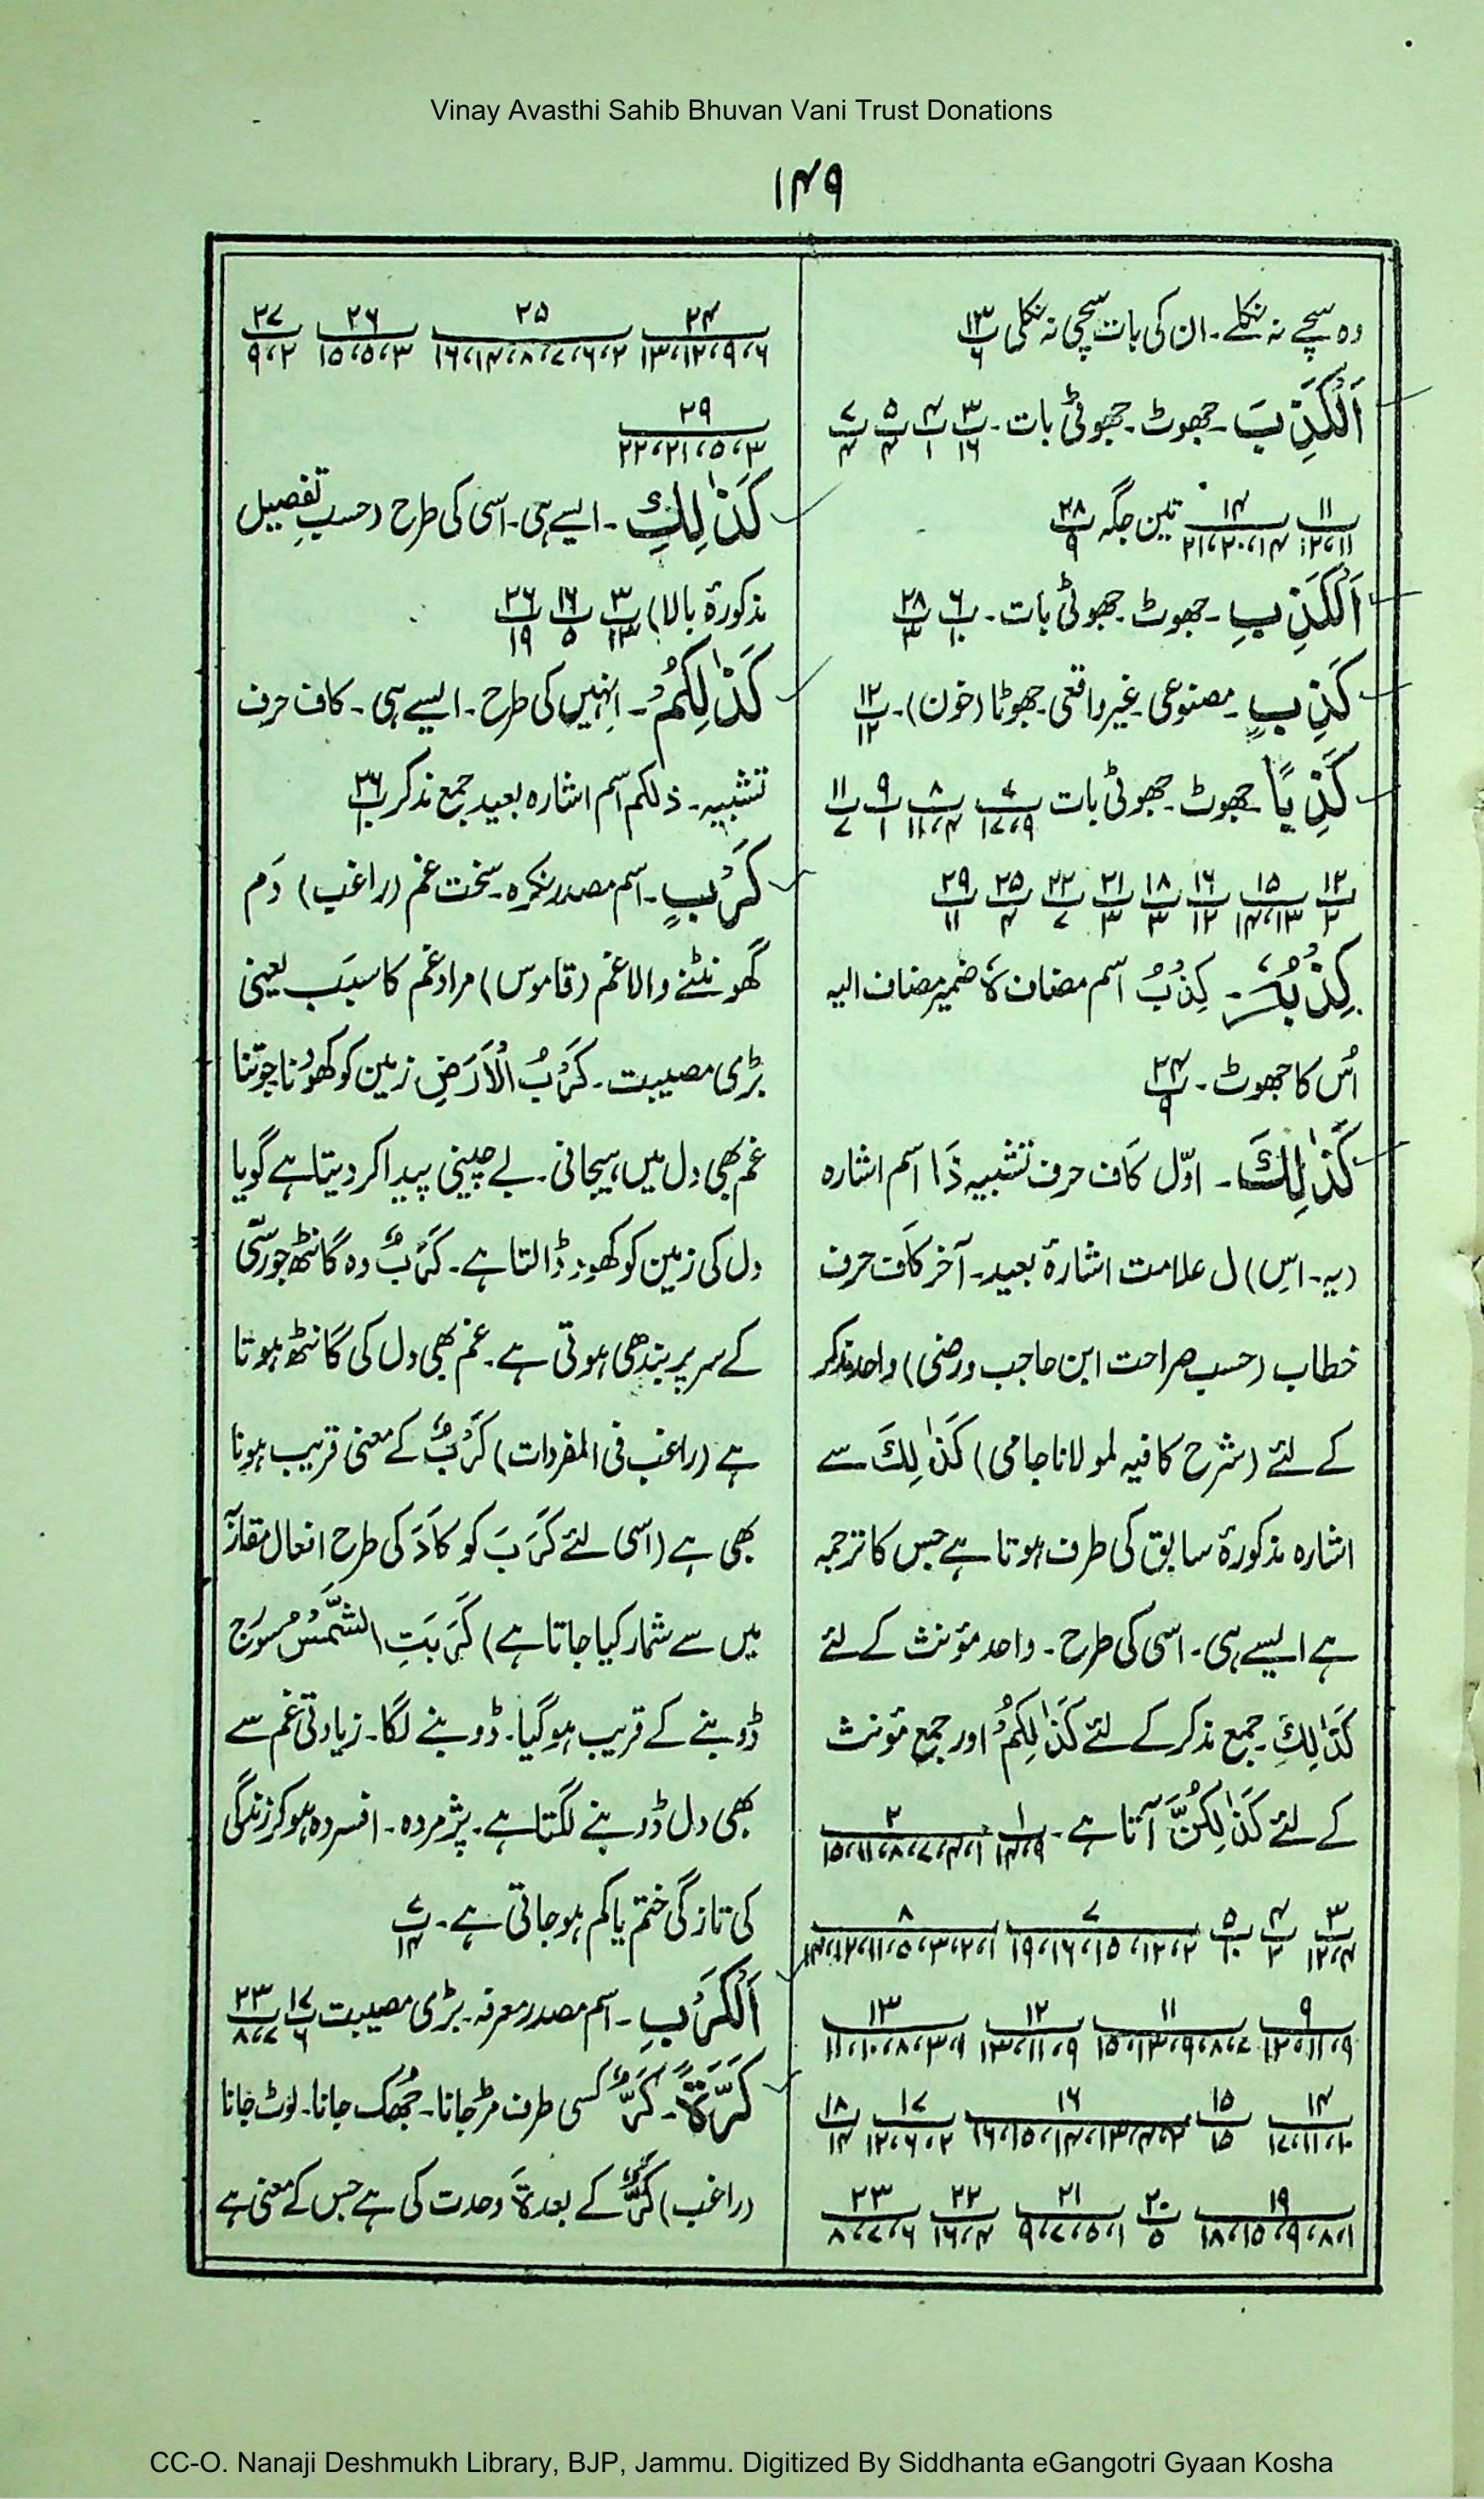 Vinay Avasthi Sahib Bhuvan Vani Trust Donations
۱۴۹
وہ سچے نہ نکلے۔ ان کی بات سچی نہ نکلی ۱۳/۶
اَلْکَذِبَ۔ جھوٹ۔ جھوٹی بات۔ ۳/۱۶ ۴/۱ ۵/۴ ۷/۴
۱۱/۱۱،۱۲ ۱۴/۱۴،۲۰،۲۱ تین جگہ ۲۸/۹
اَلْکَذِبِ۔ جھوٹ۔ جھوٹی بات۔ ۶/۱۰ ۲۸/۳
کَذِبٍ۔ مصنوعی۔ غیر واقعی۔ جھوٹا (خون)۔ ۱۲/۱۲
کَذِبًا۔ جھوٹ۔ جھوٹی بات ۷/۹،۱۷ ۸/۴،۱۱ ۹/۱ ۱۱/۷
۱۲/۲ ۱۵/۱۳،۱۴ ۱۶/۱۲ ۱۸/۳ ۲۱/۳ ۲۲/۷ ۲۵/۴ ۲۹/۱۱
کِذْبُہٗ۔ کِذْبُ اسم مضاف ہٗ ضمیر مضاف الیہ
اُس کا جھوٹ۔ ۲۴/۹
کَذٰلِکَ۔ اوّل کَاف حرف تشبیہ ذَا اسم اشارہ
(یہ۔ اسِ) ل علامت اشارۂ بعید۔ آخر کَاف حرف
خطاب (حسب صراحت ابن حاجب و رضی) واحد مذکر
کے لئے (شرح کافیہ لمولانا جامی) کَذٰلِکَ سے
اشارہ مذکورۂ سابق کی طرف ہوتا ہے جس کا ترجمہ
ہے ایسے ہی۔ اسی کی طرح۔ واحد مؤنث کے لئے
کَذٰلِکِ۔ جمع مذکر کے لئے کَذٰلِکُمْ اور جمع مؤنث
کے لئے کَذٰلِکُنَّ آتا ہے۔ ۱/۹،۱۴ ۲/۱،۴،۷،۸،۱۱،۱۵
۳/۴،۱۲ ۴/۲ ۵/۱۰ ۷/۲،۱۲،۱۵،۱۶،۱۹ ۸/۱،۲،۳،۵،۱۱،۱۲
۹/۹،۱۱،۱۲ ۱۱/۷،۸،۹،۱۳،۱۵ ۱۲/۹،۱۱،۱۳ ۱۳/۱،۳،۸،۱۰،۱۱
۱۴/۱۰،۱۱،۱۷ ۱۵/۱۵ ۱۶ ۱۷/۲،۶،۱۲ ۱۸/۱۴
۱۹/۱،۸،۹،۱۵،۱۸ ۲۰/۵ ۲۱/۱،۵،۷،۹ ۲۲/۴،۱۶ ۲۳/۶،۷،۸
۲۴/۶،۹،۱۲،۱۳ ۲۵/۲،۶،۷،۸،۱۴،۱۶ ۲۶/۳،۵،۱۵ ۲۷/۲،۹
۲۹/۳،۵،۲۱،۲۲
کَذٰلِکِ۔ ایسے ہی۔ اسی کی طرح (حسبِ تفصیل
مذکورۂ بالا) ۳/۱۳ ۱۶/۵ ۲۶/۱۹
کَذٰلِکُمْ۔ اِنہیں کی طرح۔ ایسے ہی۔ کاف حرف
تشبیہ۔ ذلکم اسم اشارہ بعید جمع مذکر ۲۶/۱۰
کَرْبٍ۔ اسم مصدر نکرہ۔ سخت غم (راغب) دَم
گھونٹنے والا غم (قاموس) مراد غم کا سبَب یعنی
بڑی مصیبت۔ کَرْبُ الْاَرْضِ زمین کو کھودنا جوتنا
غم بھی دل میں ہیجانی۔ بے چینی پیدا کر دیتا ہے گویا
دل کی زمین کو کھود ڈالتا ہے۔ کَرَبٌ وہ گانٹھ جو رسّی
کے سر پر بندھی ہوتی ہے۔ غم بھی دل کی گانٹھ ہوتا
ہے (راغب فی المفردات) کَرْبٌ کے معنی قریب ہونا
بھی ہے (اسی لئے کَرَبَ کو کَادَ کی طرح افعال مقاربہ
میں سے شمار کیا جاتا ہے) کَرَبَتِ الشَّمْسُ سورج
ڈوبنے کے قریب ہو گیا۔ ڈوبنے لگا۔ زیادتی غم سے
بھی دل ڈوبنے لگتا ہے۔ پژمردہ۔ افسردہ ہو کر زندگی
کی تازگی ختم یا کم ہو جاتی ہے۔ ۷/۱۴
اَلْکَرْبِ۔ اسم مصدر معرفہ۔ بڑی مصیبت ۱۷/۶ ۲۳/۷،۸
کَرَّۃً۔ کَرٌّ کسی طرف مڑ جانا۔ جُھک جانا۔ لوٹ جانا
(راغب) کَرٌّ کے بعد ۃ وحدت کی ہے جس کے معنی ہے
CC-O. Nanaji Deshmukh Library, BJP, Jammu. Digitized By Siddhanta eGangotri Gyaan Kosha